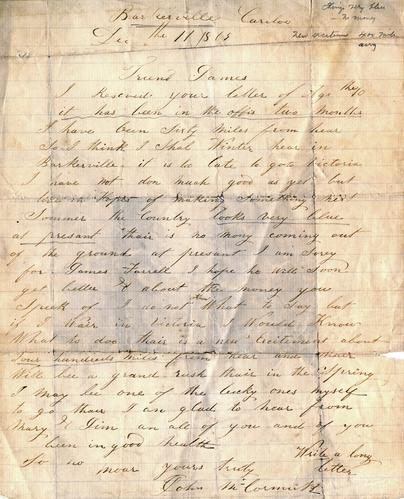 Things very blue
– no money
new excitement 400 miles
away
Barkerville Cariboo
Dec the 11 1865
Friend James
I Receved your letter of Agt the 10
it has been in the offis two months
I have been Sixty Miles from hear
So I think I Shal Winter hear in
Barkerville it is to late to goto Victoria
I have not don much good as yet but
live in hopes of making Something next
Sommer the Country looks very blue
at presant thair is no mony coming out
of the ground at presant I am Sorey
for James Farrell I hope he will Soon
get better & about the money you
Speak of I do not What to Say but
if I Wair in Victoria I Would Know
What to doo thair is a new Excitement about
four hundreds miles from hear and thair
Will bee a grand rush thair in the Spring
I may bee one of the lucky ones myself
to go thair I am glad to hear from
Mary & Jim an all of you and if you
been in good health
So no moar yours truly
Write a long
letter
John McCormick